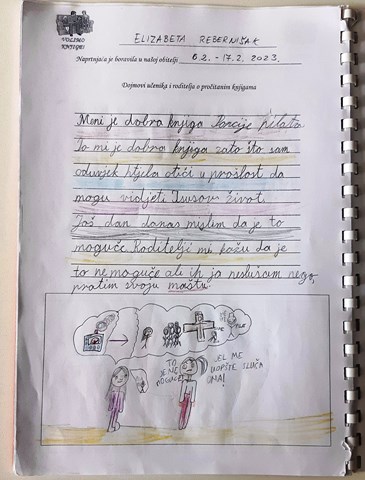 VOLIMO
KNJIGE!
ELIZABETA REBERNIŠAK
Naprtnjača je boravila u našoj obitelji 6.2. - 17.2. 2023.
Dojmovi učenika i roditelja o pročitanim knjigama
Meni je dobra knjiga Poncije pilata
To mi je dobra knjiga zato što sam
oduvjek htjela otići u prošlost da
mogu vidjeti Isusov život.
Još dan danas mislim da je to
moguče. Roditelji mi kažu da je
to ne moguče ali ih ja neslušam nego,
pratim svoju maštu.
TO
JE NE
MOGUĆE
JEL ME
UOPŠTE SLUŠA
ONA!